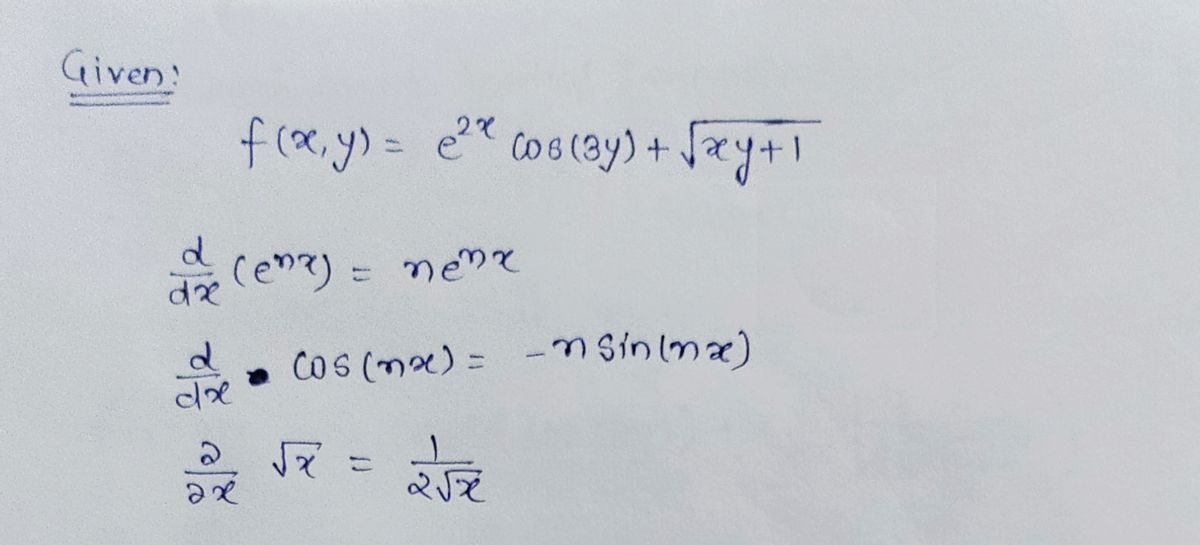 Given:
f(x,y) = e^{2x} cos(3y) + √(xy+1)
d/dx (e^{nx}) = n e^{nx}
d/dx cos(nx) = -n sin(nx)
∂/∂x √x = 1/(2√x)